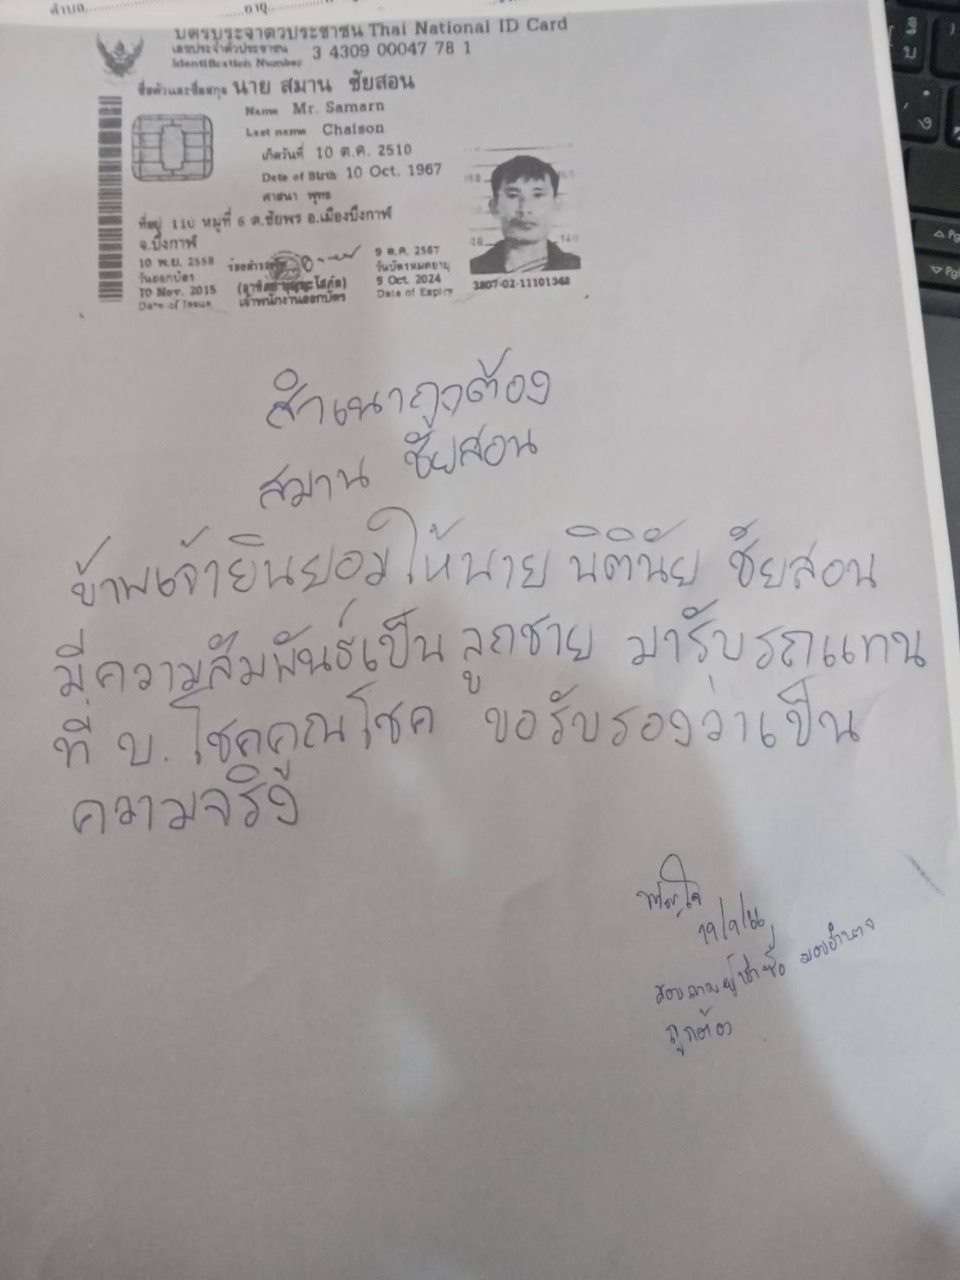 ตำบล...............อายุ...............
บัตรประจำตัวประชาชน Thai National ID Card
เลขประจำตัวประชาชน 3 4309 00047 78 1
Identification Number
ชื่อตัวและชื่อสกุล นาย สมาน ชัยสอน
Name Mr. Samarn
Last name Chaison
เกิดวันที่ 10 ต.ค. 2510
Date of Birth 10 Oct. 1967
ศาสนา พุทธ
ที่อยู่ 110 หมู่ที่ 6 ต.ชัยพร อ.เมืองบึงกาฬ
จ.บึงกาฬ
10 พ.ย. 2558
วันออกบัตร
10 Nov. 2015
Date of Issue
เจ้าพนักงานออกบัตร
9 ต.ค. 2567
วันบัตรหมดอายุ
9 Oct. 2024
Date of Expiry
สำเนาถูกต้อง
สมาน ชัยสอน
ข้าพเจ้ายินยอมให้นาย นิตินัย ชัยสอน
มีความสัมพันธ์เป็น ลูกชาย มารับรถแทน
ที่ บ. โชคคูณโชค ขอรับรองว่าเป็น
ความจริง
19/9/66
ถูกต้อง
Pg
Pg